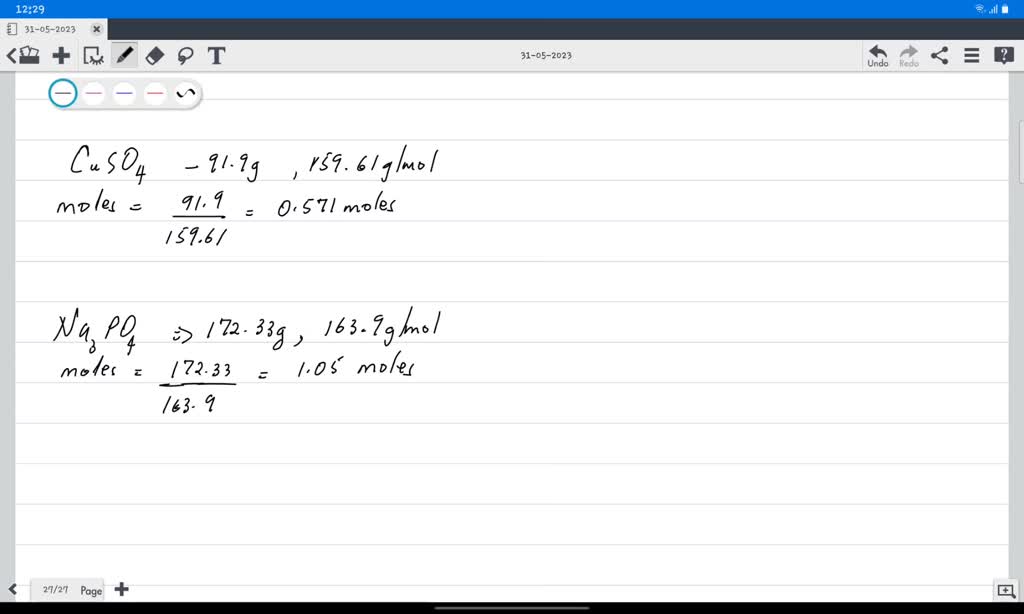 12:29
31-05-2023
T
31-05-2023
Undo
Redo
CuSO4 - 91.9g , 159.61g/mol
moles = 91.9 = 0.571 moles
159.61
Na3PO4 => 172.33g, 163.9g/mol
moles = 172.33 = 1.05 moles
163.9
27/27 Page